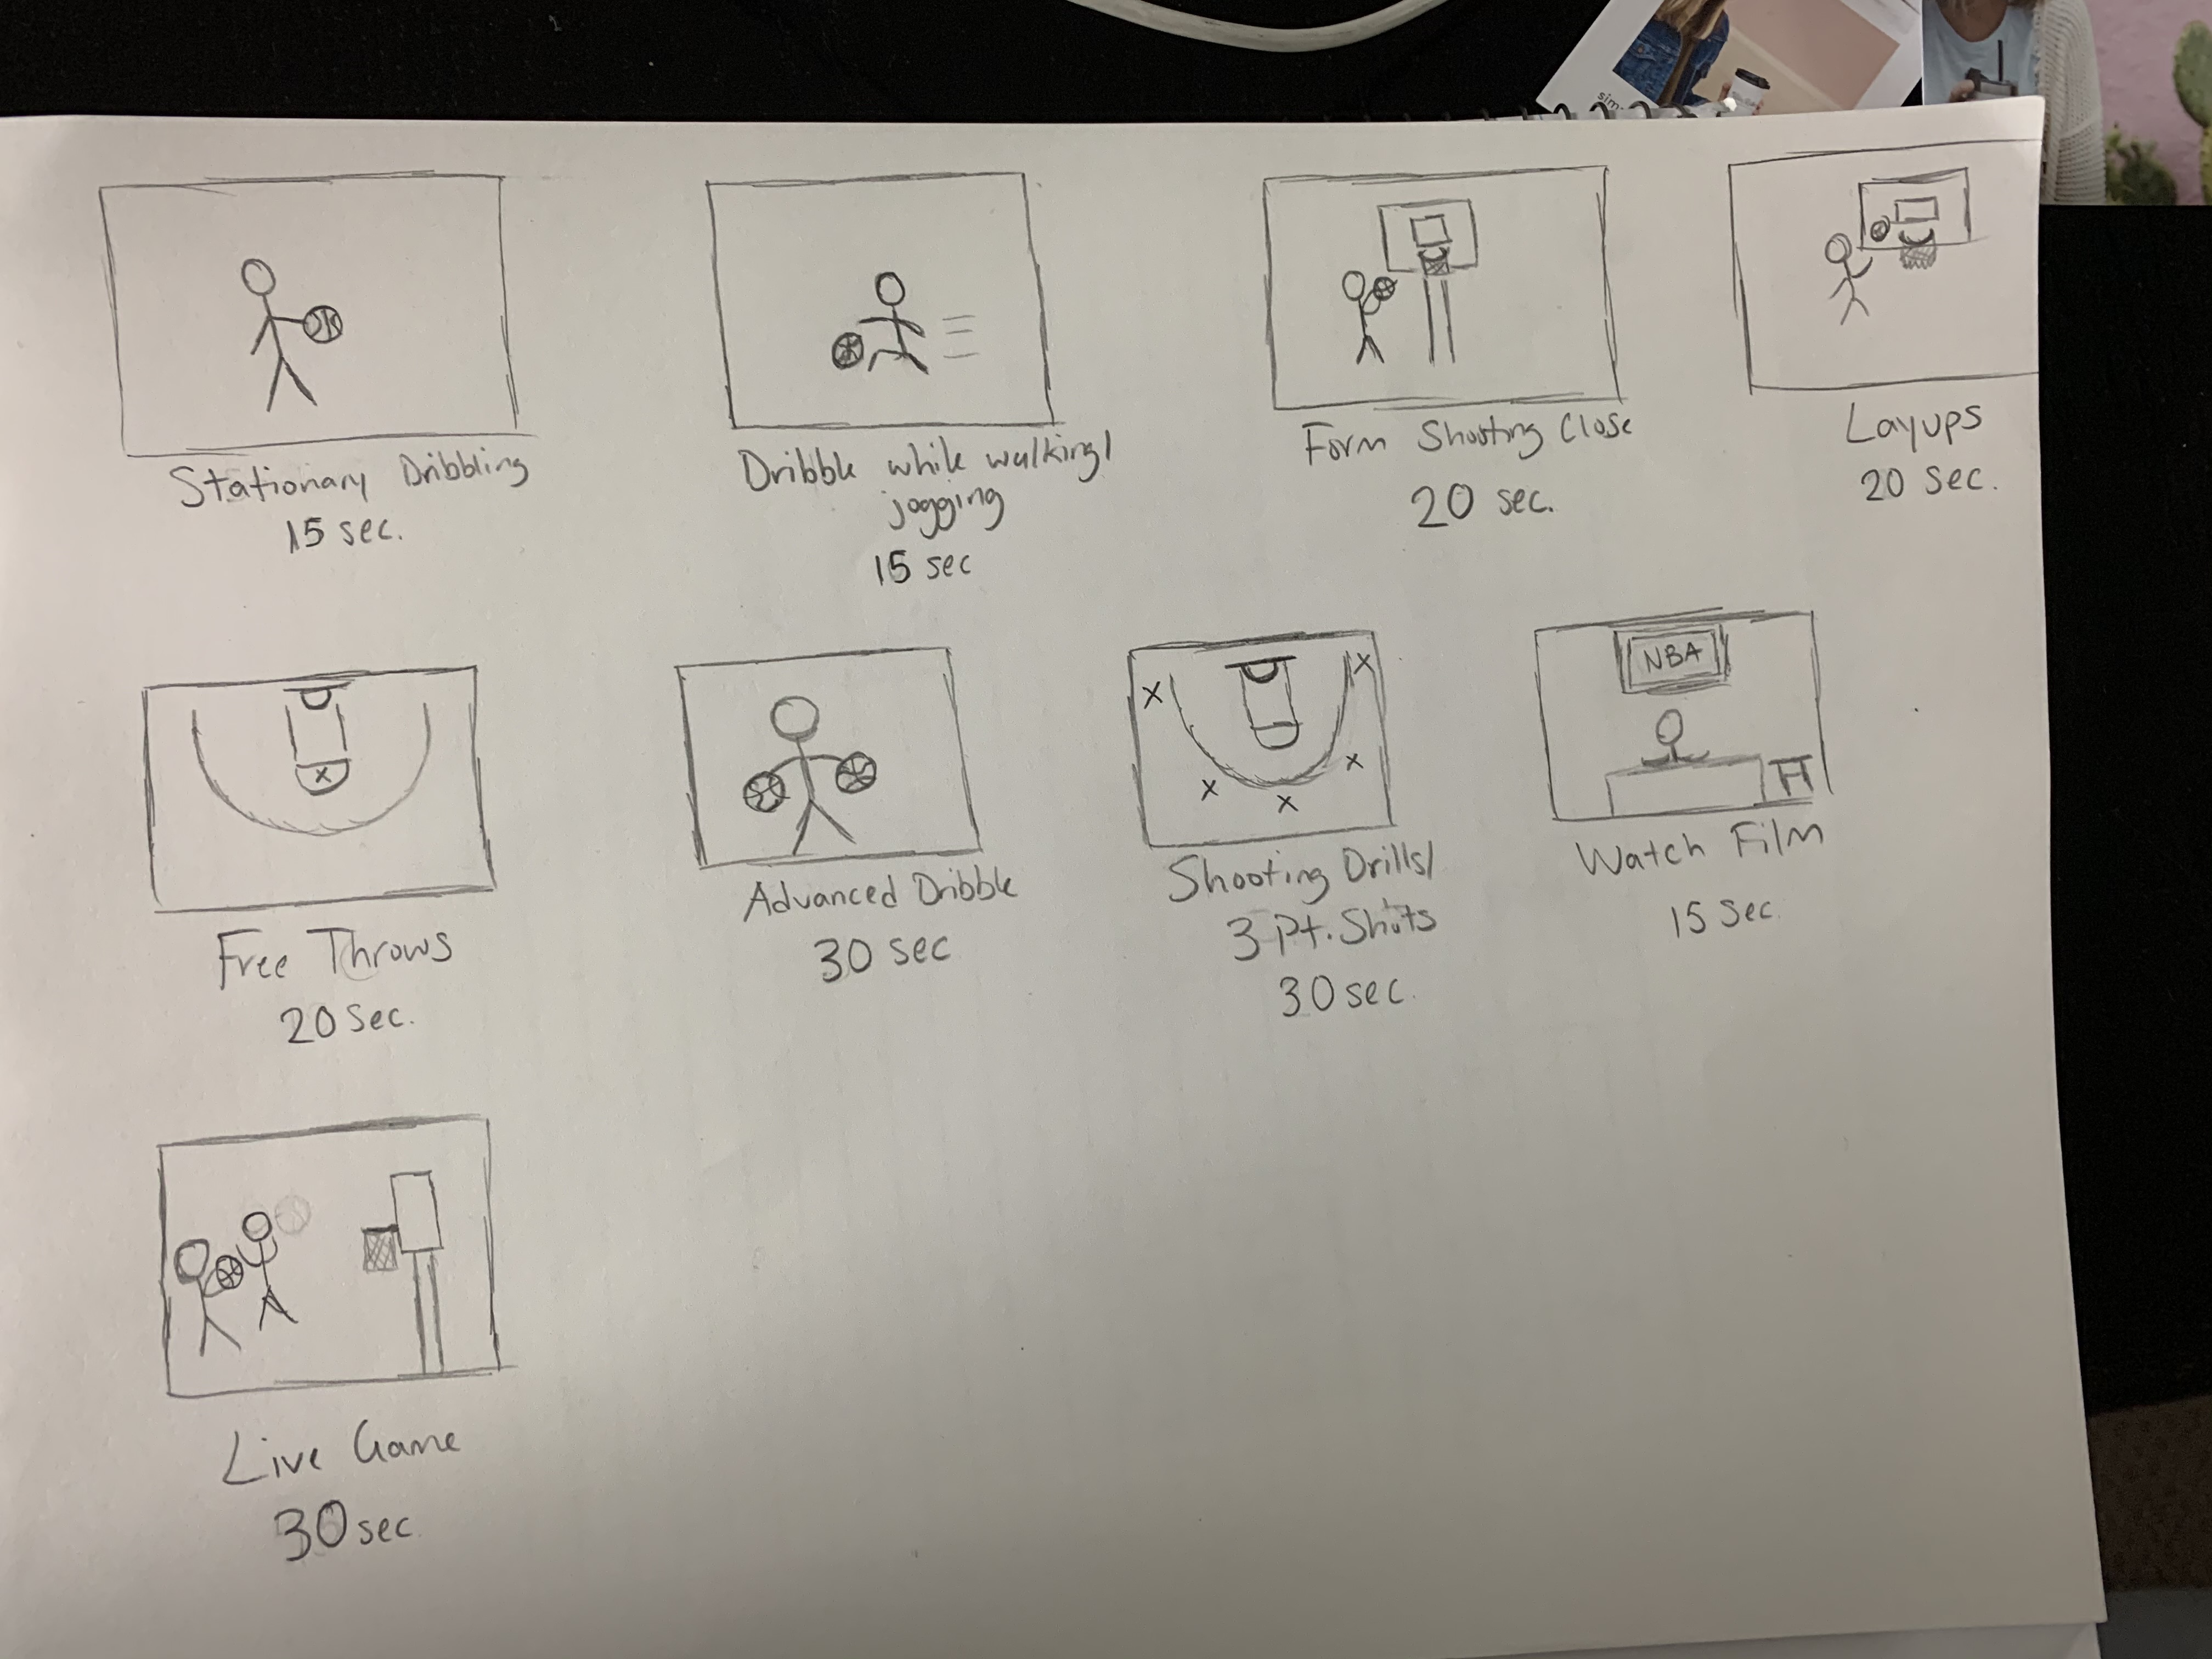 Stationary Dribbling
15 sec.
Dribble while walking/
jogging
15 sec
Form Shooting Close
20 sec.
Layups
20 sec.
Free Throws
20 sec.
Advanced Dribble
30 sec
Shooting Drills/
3 pt. Shots
30 sec.
NBA
Watch Film
15 sec.
Live Game
30 sec.